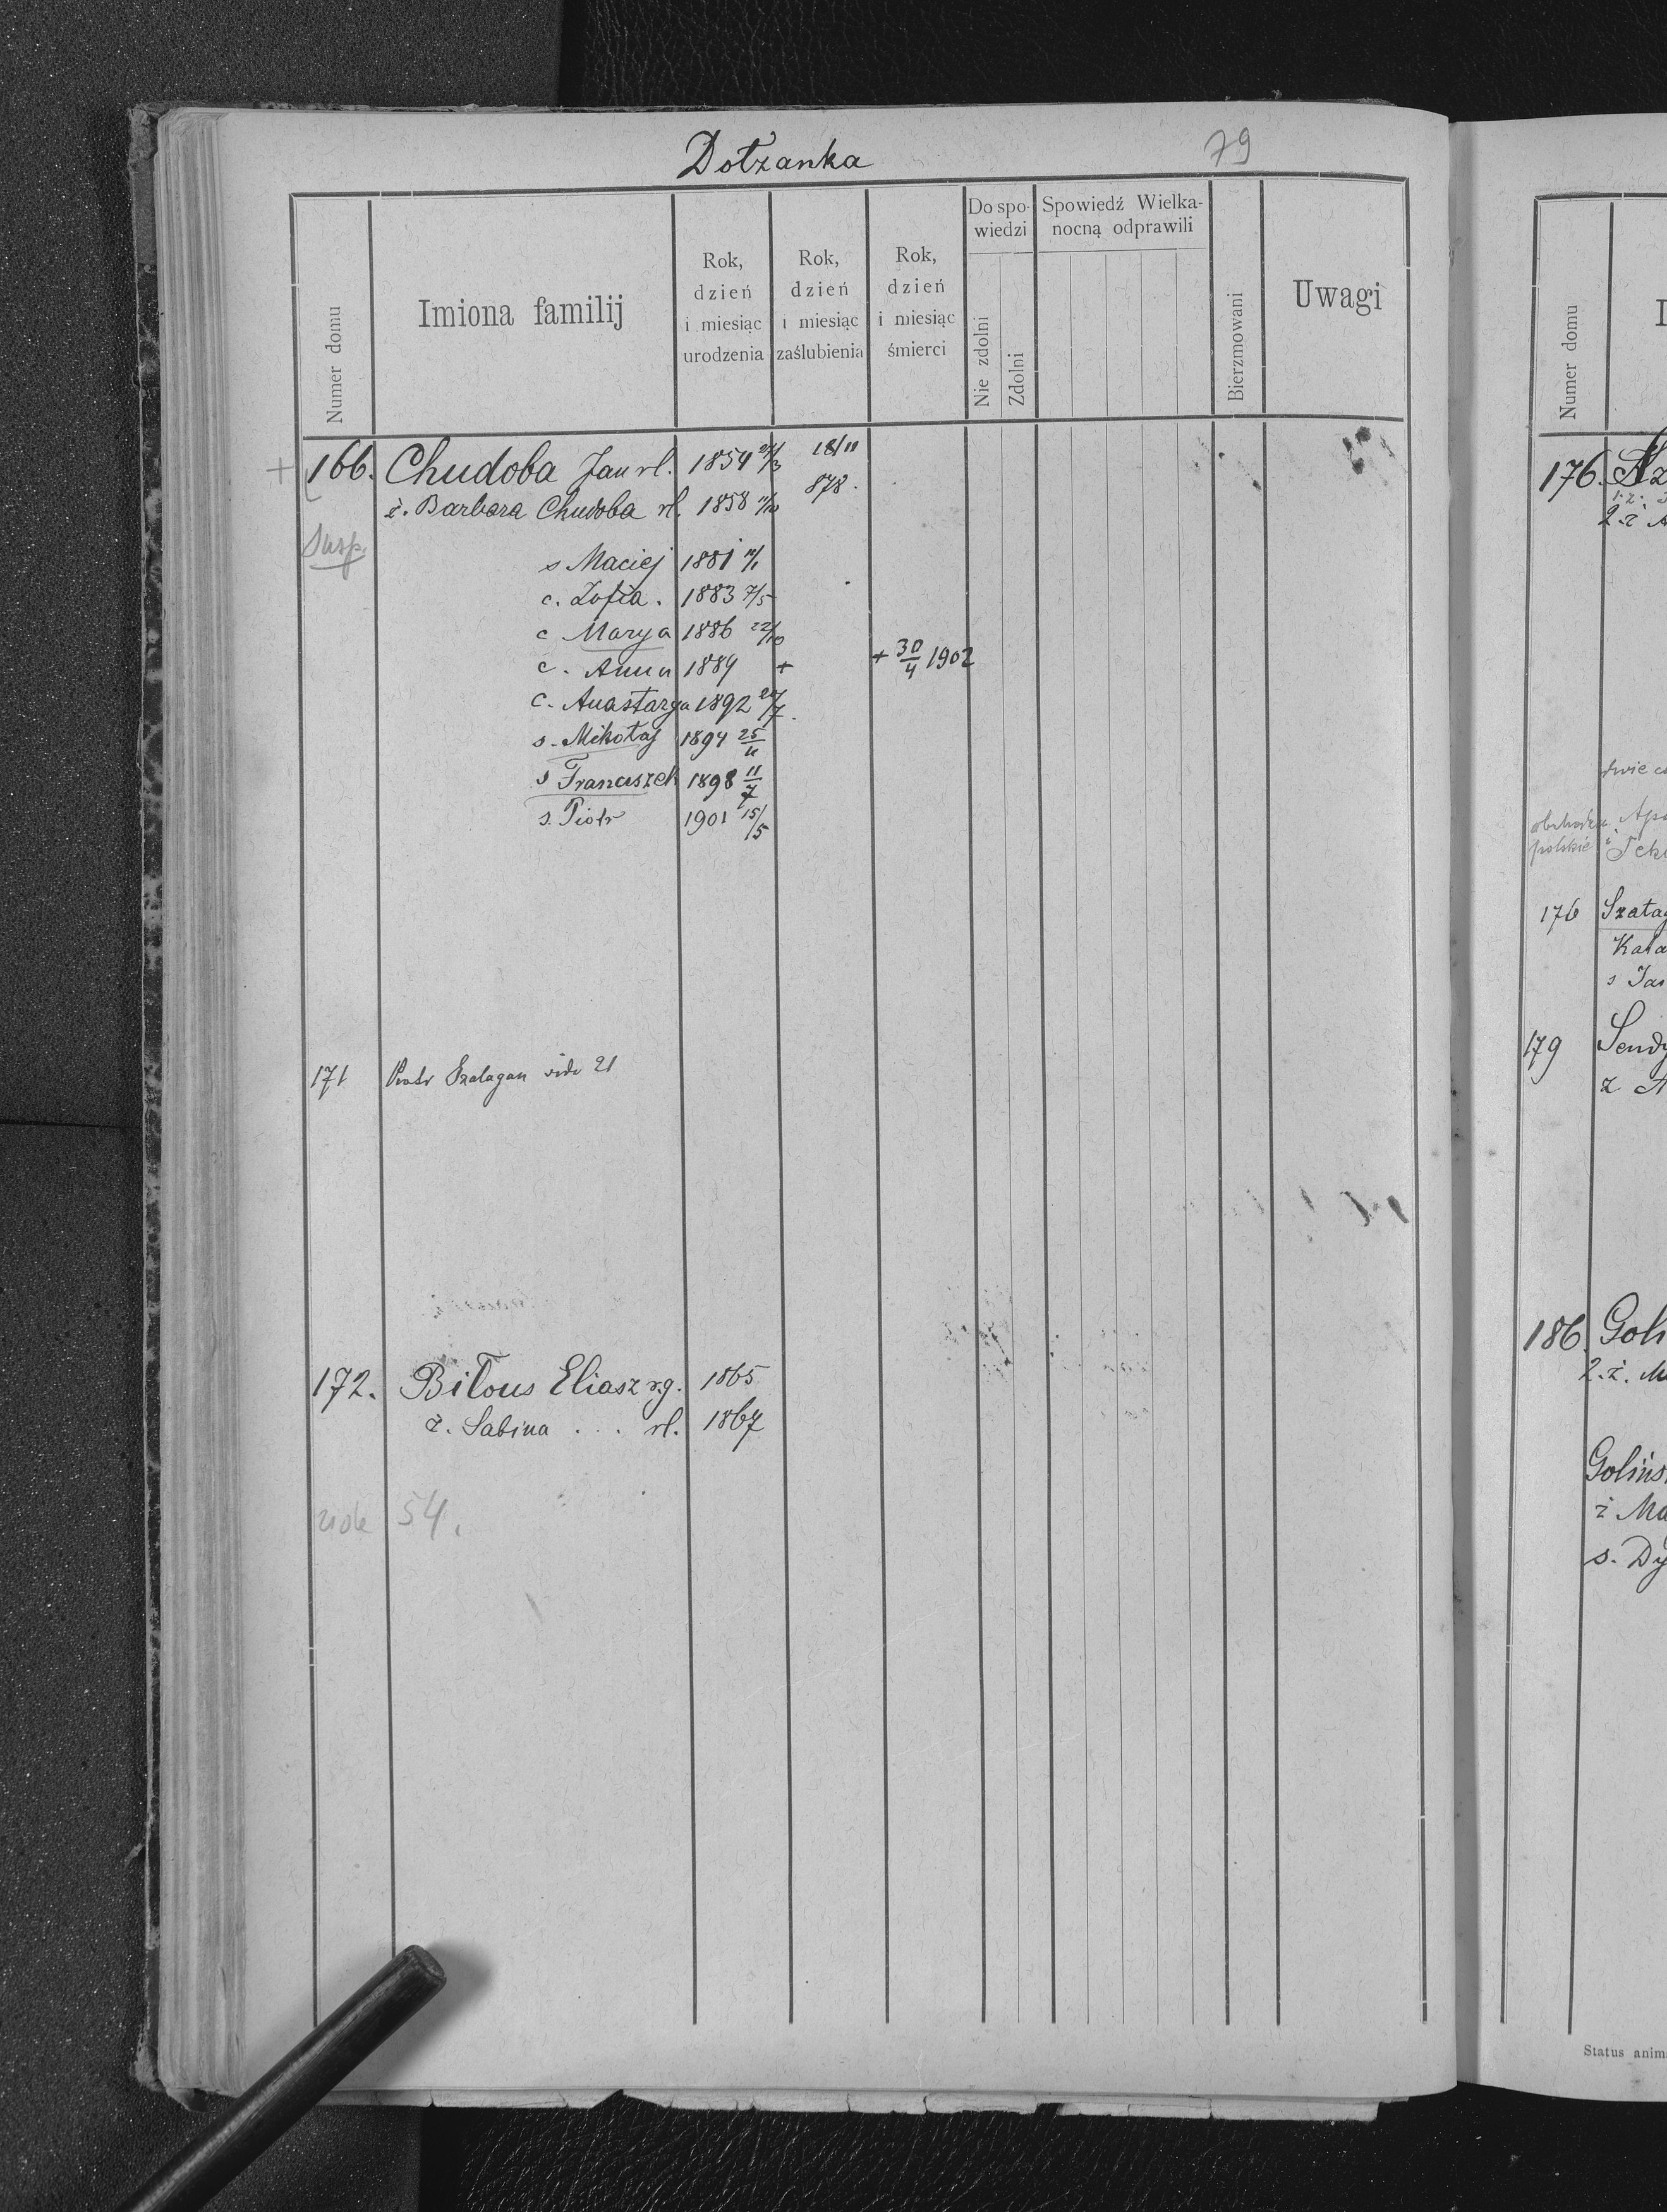 Dołżanka
79
Numer domu
Imiona familij
Rok, dzień i miesiąc urodzenia
Rok, dzień i miesiąc zaślubienia
Rok, dzień i miesiąc śmierci
Do spowiedzi
Nie zdolni
Zdolni
Spowiedź Wielkanocną odprawili
Bierzmowani
Uwagi
+ 166. Chudoba Jan rl. 1854 18/11
878.
ż. Barbara Chudoba rl. 1858
Susp.
s Maciej 1881
c. Zofia. 1883 7/5
c Marya 1886 22/10
c. Anna 1889 + + 30/4 1902
c. Anastazya 1892
s. Mikołaj 1894
s Franciszek 1898 11/7
s. Piotr 1901 15/5
171 Piotr Szalagan vide 21
172. Biłous Eliasz r.g. 1865
ż. Sabina . . . rl. 1867
vide 54.
Numer domu
176.
2. ż
polskie
176
s Jan
179
186.
2. ż.
ż
s.
Status anim